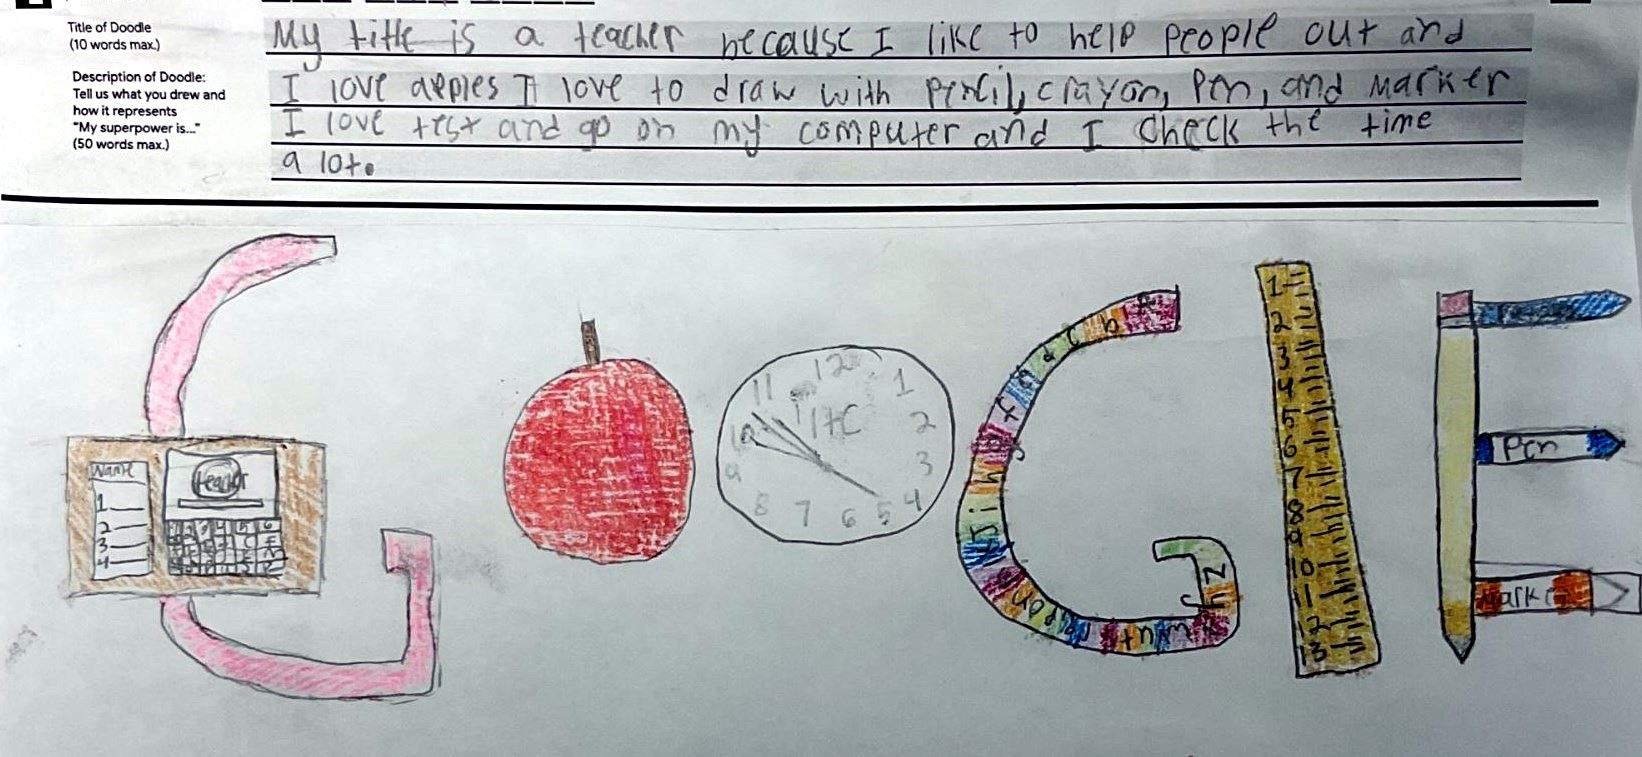 Title of Doodle
(10 words max.)
My title is a teacher because I like to help people out and
Description of Doodle:
Tell us what you drew and
how it represents
"My superpower is..."
(50 words max.)
I love apples I love to draw with pencil, crayon, Pen, and Marker
I love test and go on my computer and I check the time
a lot.
Name
1
2
3
4
teacher
12
11
1
10
2
9
3
8
7
6
5
4
b
c
d
e
f
g
h
i
j
z
1
2
3
4
5
6
7
8
9
10
11
12
13
Pen
Marker